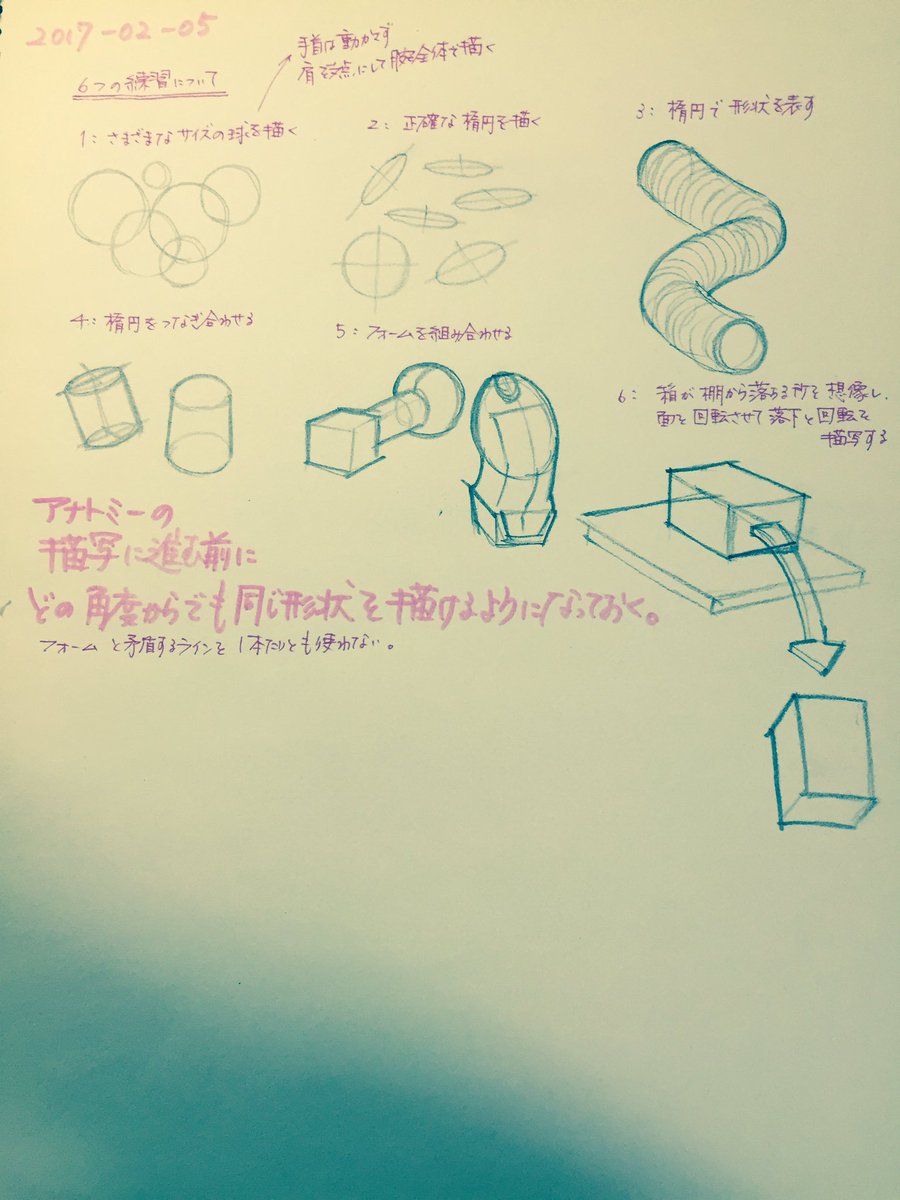 2017-02-05
6つの練習について
手首は動かさず
肩を支点にして腕全体で描く
1: さまざまなサイズの球を描く
2: 正確な楕円を描く
3: 楕円で形状を表す
4: 楕円をつなぎ合わせる
5: フォームを組み合わせる
6: 箱が棚から落ちる所を想像し、
面を回転させて落下と回転を
描写する
アナトミーの
描写に進む前に
どの角度からでも同じ形状を描けるようになっておく。
フォームと矛盾するラインを1本たりとも使わない。